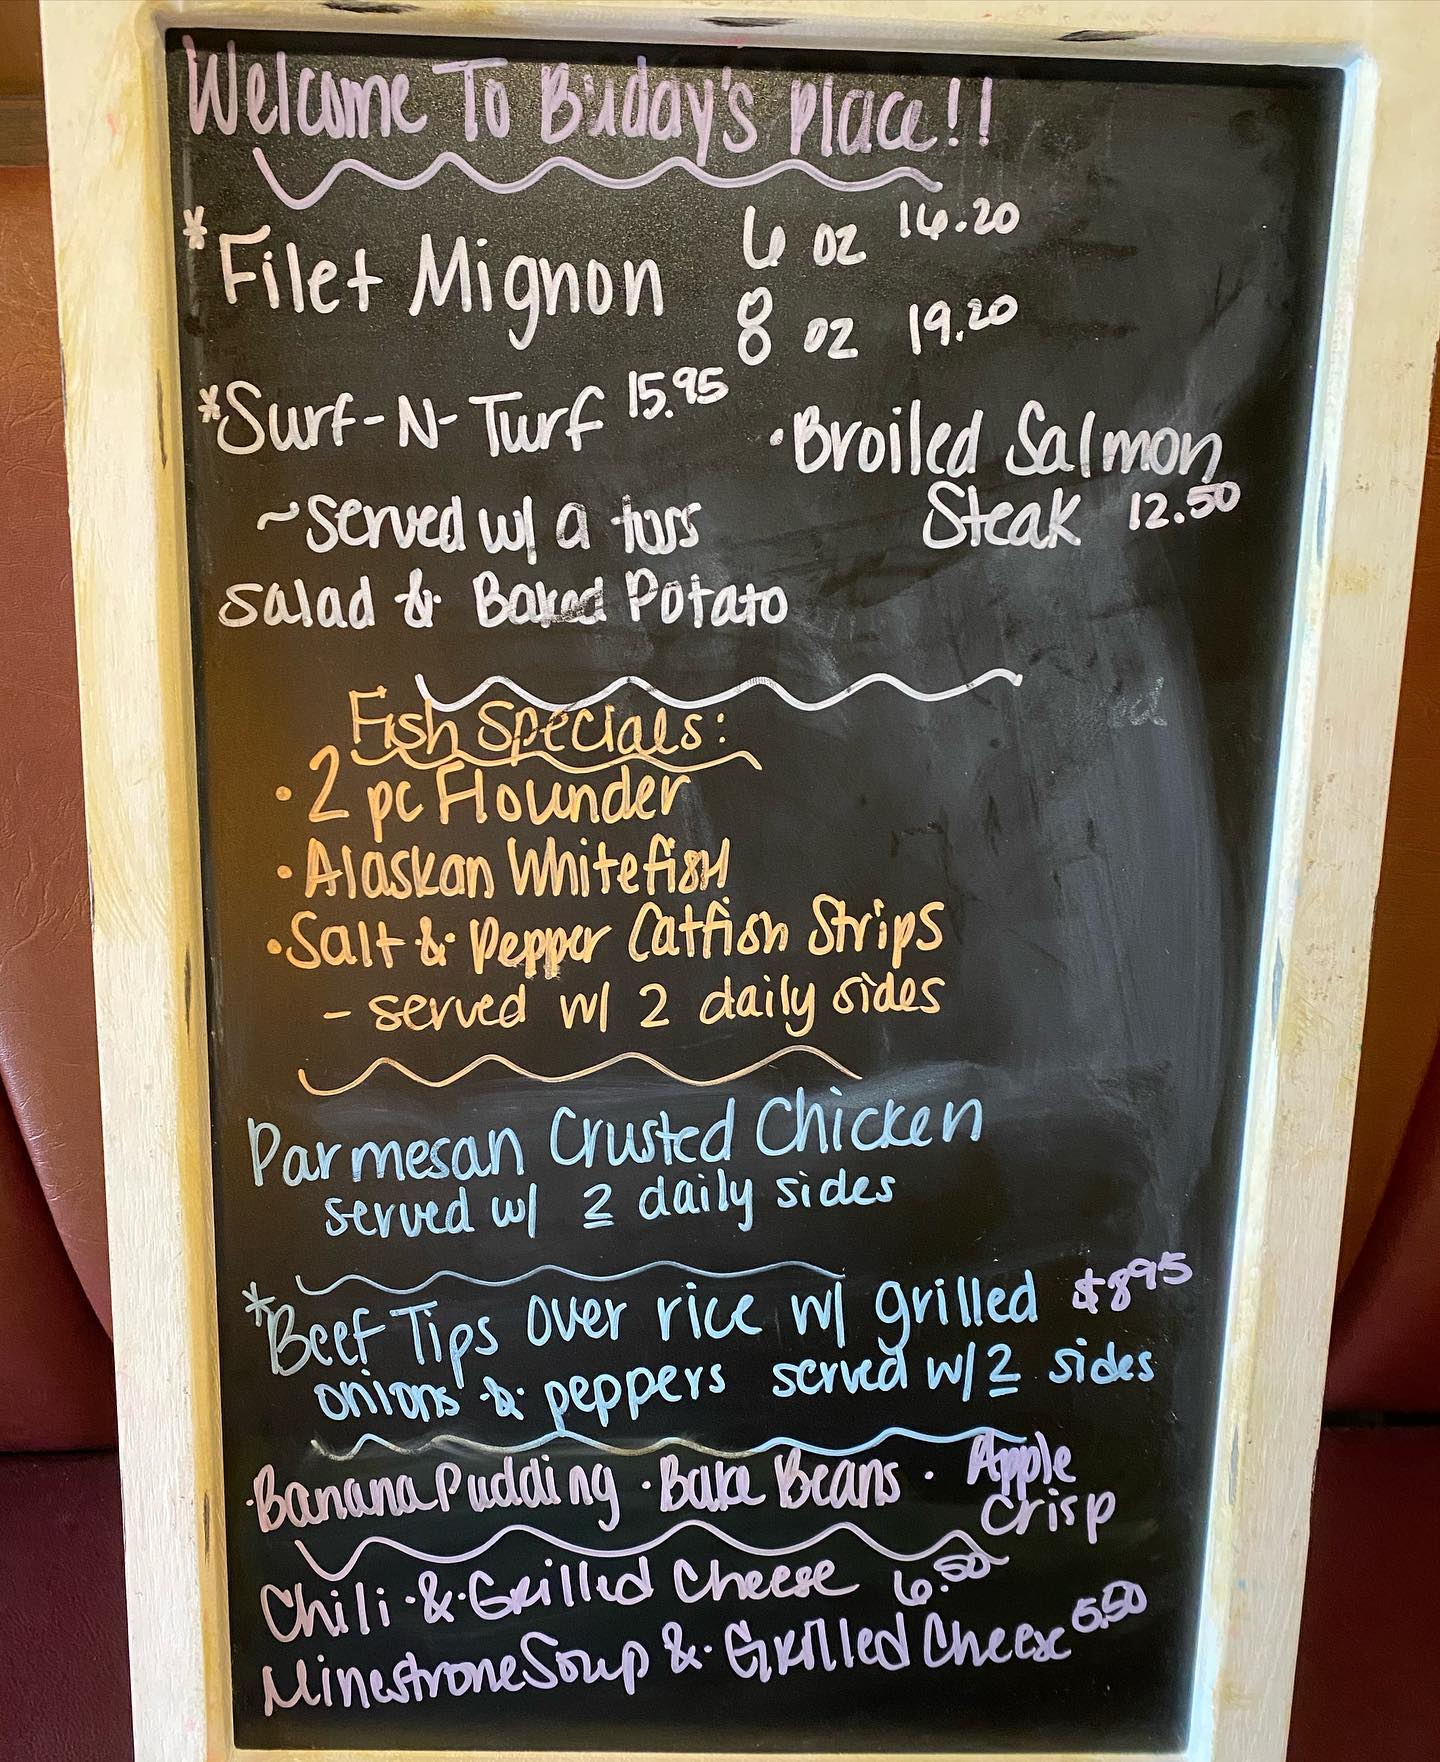 Welcome To B'uday's Place!!
*Filet Mignon 6 oz 16.20
8 oz 19.20
*Surf-N-Turf 15.95
·Broiled Salmon
Steak 12.50
~served w/ a toss
salad & Baked Potato
Fish Specials:
·2 pc Flounder
·Alaskan Whitefish
·Salt & Pepper Catfish Strips
- served w/ 2 daily sides
Parmesan Crusted Chicken
served w/ 2 daily sides
*Beef Tips over rice w/ grilled $8.95
onions & peppers served w/ 2 sides
·Banana Pudding ·Bake Beans · Apple
Crisp
Chili & Grilled Cheese 6.50
Minestrone Soup & Grilled Cheese 5.50